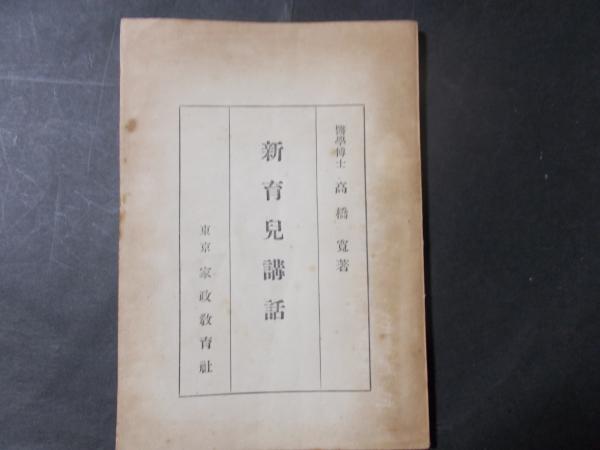 醫學博士 高橋寬著
新育兒講話
東京 家政敎育社